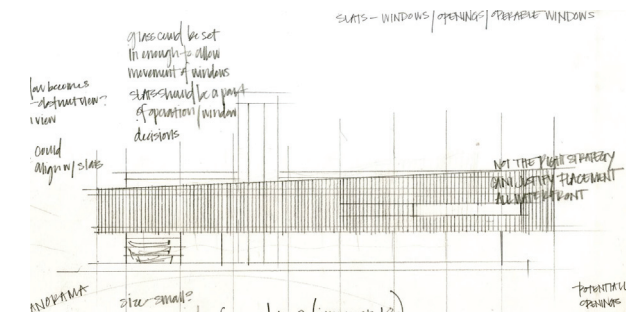 SLATS - WINDOWS / OPENINGS / OPERABLE WINDOWS
glass could be set
in enough to allow
movement of windows
slats should be a part
of operation / window
decisions
low becomes
view
could
align w/ slats
NOT THE RIGHT STRATEGY
CAN I JUSTIFY PLACEMENT
ALL WATERFRONT
size - small?
POTENTIAL
OPENINGS